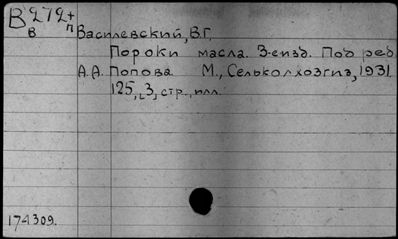 В 272+
в п
Василевский, В.Г.
Пороки масла. 3-еизд. Под ред.
А.А. Попова М., Сельколхозгиз, 1931.
125, [3] стр., илл.
174309.